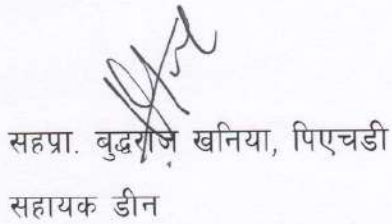 सहप्रा. बुद्धराज खनिया, पिएचडी
सहायक डीन